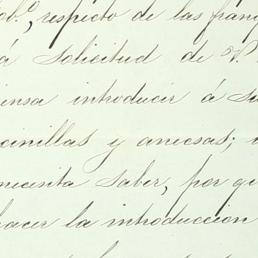 ob.º, respecto de las fran
á solicitud de V.
ensa introducir á su
cinillas y anecsas;
necesita saber, por qu
hacer la introduccion